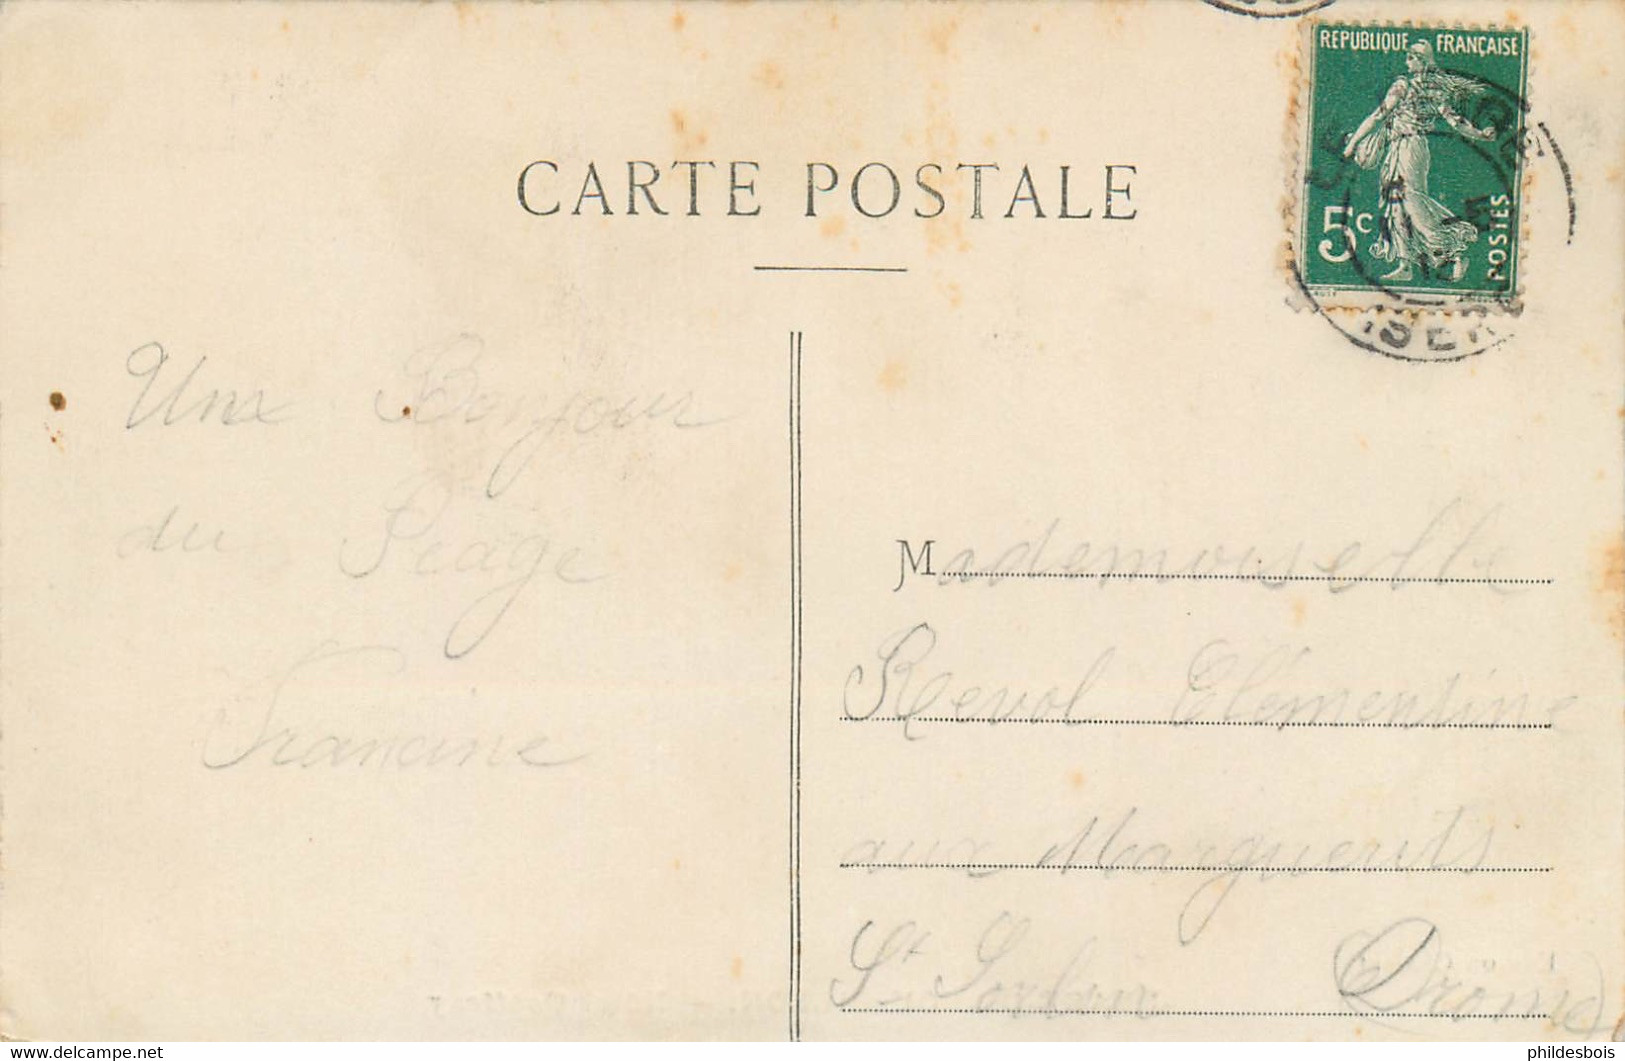 REPUBLIQUE FRANÇAISE
5c
POSTES
CARTE POSTALE
Une Bonjour
du Péage
Francine
Mademoiselle
Revol Clémentine
aux Marguerits
St Sorlin (Drôme)
ISERE
delcampe.net
phildesbois